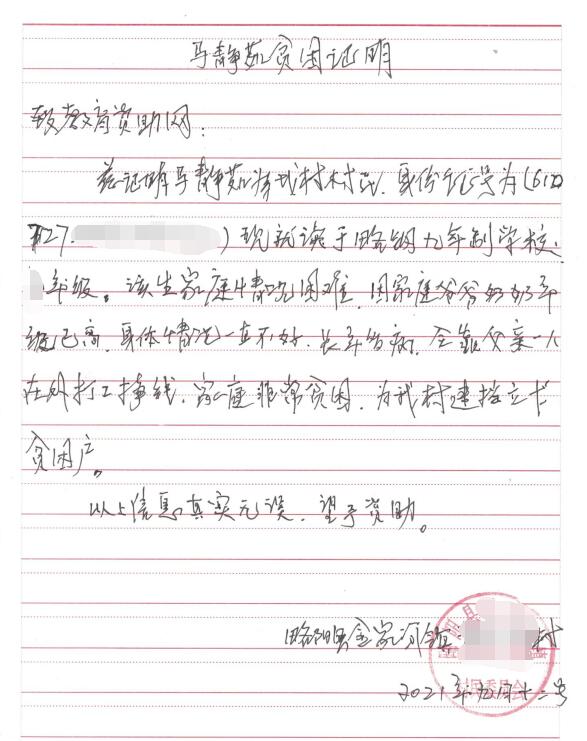 马静茹贫困证明
致教育资助网:
兹证明马静茹为我村村民,身份证号为(612
727.            )现就读于略钢九年制学校
年级。该生家庭情况困难,因家庭爷爷奶奶年
纪已高,身体情况一直不好,长年治病,全靠父亲一人
在外打工挣钱,家庭非常贫困,为我村建档立卡
贫困户。
以上信息真实无误,望予资助。
略阳县金家河镇      村
略阳县 镇
村民委员会
2021年五月十二号